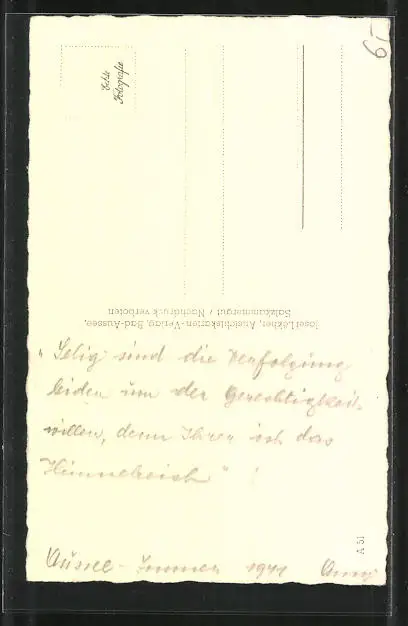 6,-
Echte
Fotografie
Josef Lökher, Ansichtskarten-Verlag, Bad-Aussee,
Salzkammergut / Nachdruck verboten
„Selig sind die Verfolgung
leiden um der Gerechtigkeit
willen, denn Ihrer ist das
Himmelreich" !
Aussee - Sommer 1941
A 51